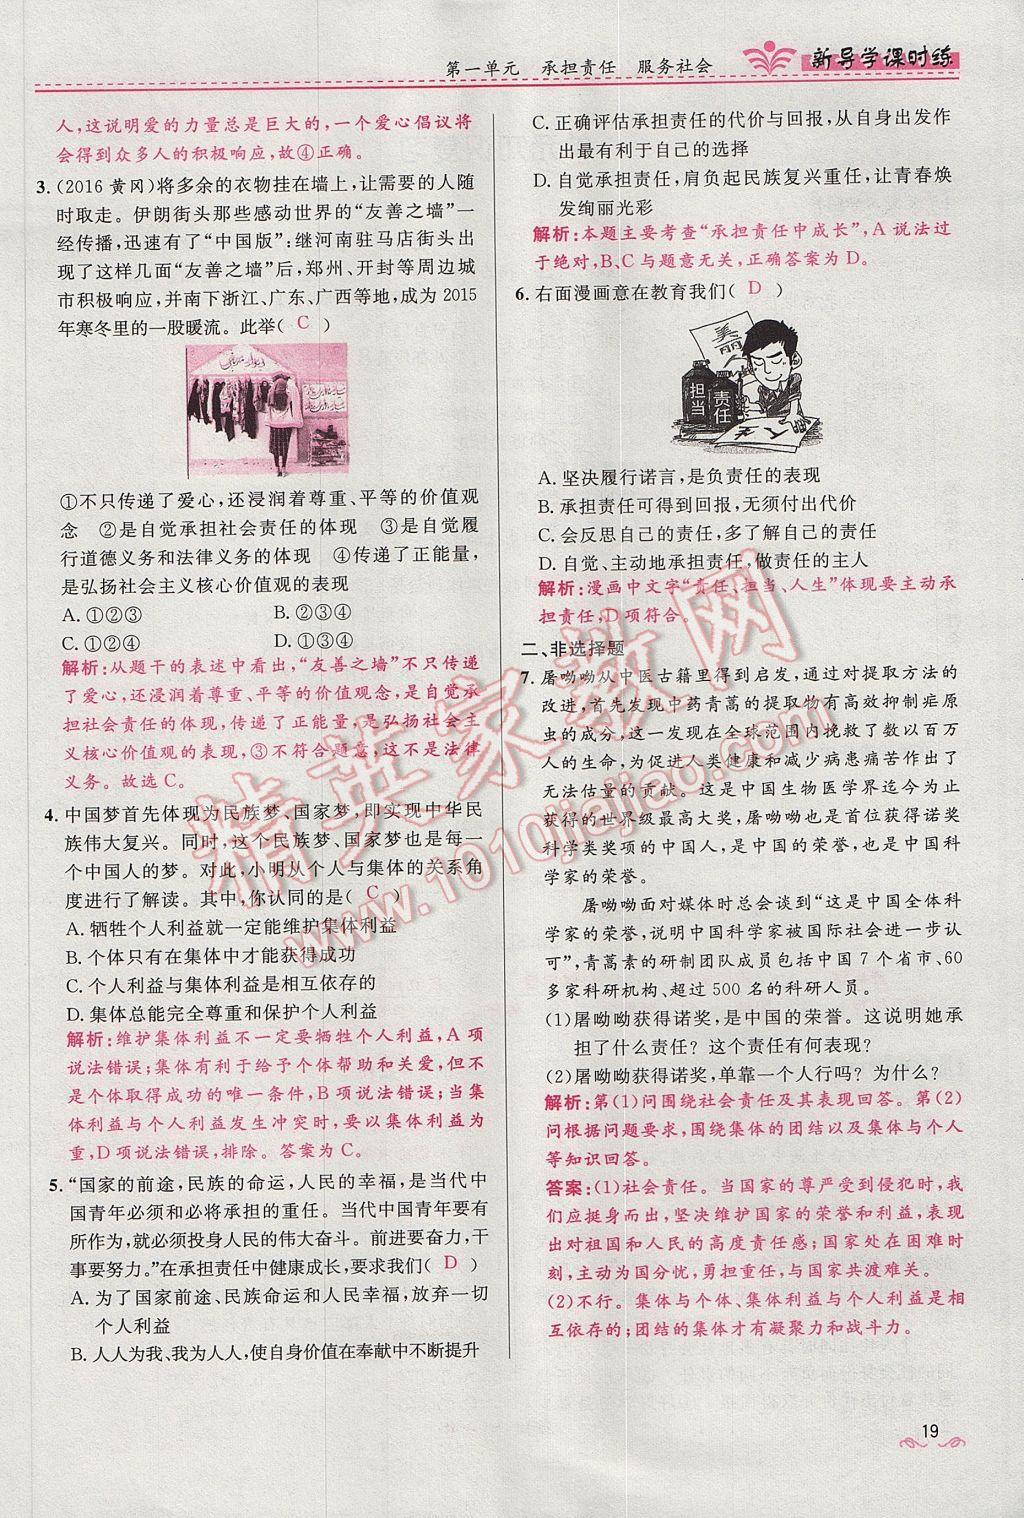 第一单元　承担责任　服务社会
新导学课时练
人,这说明爱的力量总是巨大的,一个爱心倡议将
会得到众多人的积极响应,故④正确。
3.(2016 黄冈)将多余的衣物挂在墙上,让需要的人随
时取走。伊朗街头那些感动世界的“友善之墙”一
经传播,迅速有了“中国版”:继河南驻马店街头出
现了这样几面“友善之墙”后,郑州、开封等周边城
市积极响应,并南下浙江、广东、广西等地,成为 2015
年寒冬里的一股暖流。此举( C )
①不只传递了爱心,还浸润着尊重、平等的价值观
念　②是自觉承担社会责任的体现　③是自觉履
行道德义务和法律义务的体现　④传递了正能量,
是弘扬社会主义核心价值观的表现
A.①②③　B.②③④
C.①②④　D.①③④
解析:从题干的表述中看出,“友善之墙”不只传递
了爱心,还浸润着尊重、平等的价值观念,是自觉承
担社会责任的体现,传递了正能量,是弘扬社会主
义核心价值观的表现,③不符合题意,这不是法律
义务。故选 C。
4.中国梦首先体现为民族梦、国家梦,即实现中华民
族伟大复兴。同时,这个民族梦、国家梦也是每一
个中国人的梦。对此,小明从个人与集体的关系角
度进行了解读。其中,你认同的是( C )
A.牺牲个人利益就一定能维护集体利益
B.个体只有在集体中才能获得成功
C.个人利益与集体利益是相互依存的
D.集体总能完全尊重和保护个人利益
解析:维护集体利益不一定要牺牲个人利益,A 项
说法错误;集体有利于给予个体帮助和关爱,但不
是个体取得成功的唯一条件,B 项说法错误;当集
体利益与个人利益发生冲突时,要以集体利益为
重,D项说法错误,排除。答案为 C。
5.“国家的前途,民族的命运,人民的幸福,是当代中
国青年必须和必将承担的重任。当代中国青年要有
所作为,就必须投身人民的伟大奋斗。前进要奋力,干
事要努力。”在承担责任中健康成长,要求我们( D )
A.为了国家前途、民族命运和人民幸福,放弃一切
个人利益
B.人人为我、我为人人,使自身价值在奉献中不断提升
C.正确评估承担责任的代价与回报,从自身出发作
出最有利于自己的选择
D.自觉承担责任,肩负起民族复兴重任,让青春焕
发绚丽光彩
解析:本题主要考查“承担责任中成长”,A 说法过
于绝对,B、C 与题意无关,正确答案为 D。
6.右面漫画意在教育我们( D )
美丽人
担当
责任
人生
A.坚决履行诺言,是负责任的表现
B.承担责任可得到回报,无须付出代价
C.会思自己的责任,多了解自己的责任
D.自觉、主动地承担责任,做责任的主人
解析:漫画中文字“责任、担当、人生”体现要主动承
担责任,D 项符合。
二、非选择题
7.屠呦呦从中医古籍里得到启发,通过对提取方法的
改进,首先发现中药青蒿的提取物有高效抑制疟原
虫的成分,这一发现在全球范围内挽救了数以百万
人的生命,为促进人类健康和减少病患痛苦作出了
无法估量的贡献。这是中国生物医学界迄今为止
获得的世界级最高大奖,屠呦呦也是首位获得诺奖
科学类奖项的中国人,是中国的荣誉,也是中国科
学家的荣誉。
屠呦呦面对媒体时总会谈到“这是中国全体科
学家的荣誉,说明中国科学家被国际社会进一步认
可”,青蒿素的研制团队成员包括中国 7 个省市、60
多家科研机构、超过 500 名的科研人员。
(1)屠呦呦获得诺奖,是中国的荣誉。这说明她承
担了什么责任?这个责任有何表现?
(2)屠呦呦获得诺奖,单靠一个人行吗?为什么?
解析:第(1)问围绕社会责任及其表现回答。第(2)
问根据问题要求,围绕集体的团结以及集体与个人
等知识回答。
答案:(1)社会责任。当国家的尊严受到侵犯时,我
们应挺身而出,坚决维护国家的荣誉和利益,表现
出对祖国和人民的高度责任感;国家处在困难时
刻,主动为国分忧,勇担重任,与国家共渡难关。
(2)不行。集体与个体、集体利益与个人利益是相
互依存的;团结的集体才有凝聚力和战斗力。
精英家教网
www.1010jiajiao.com
19